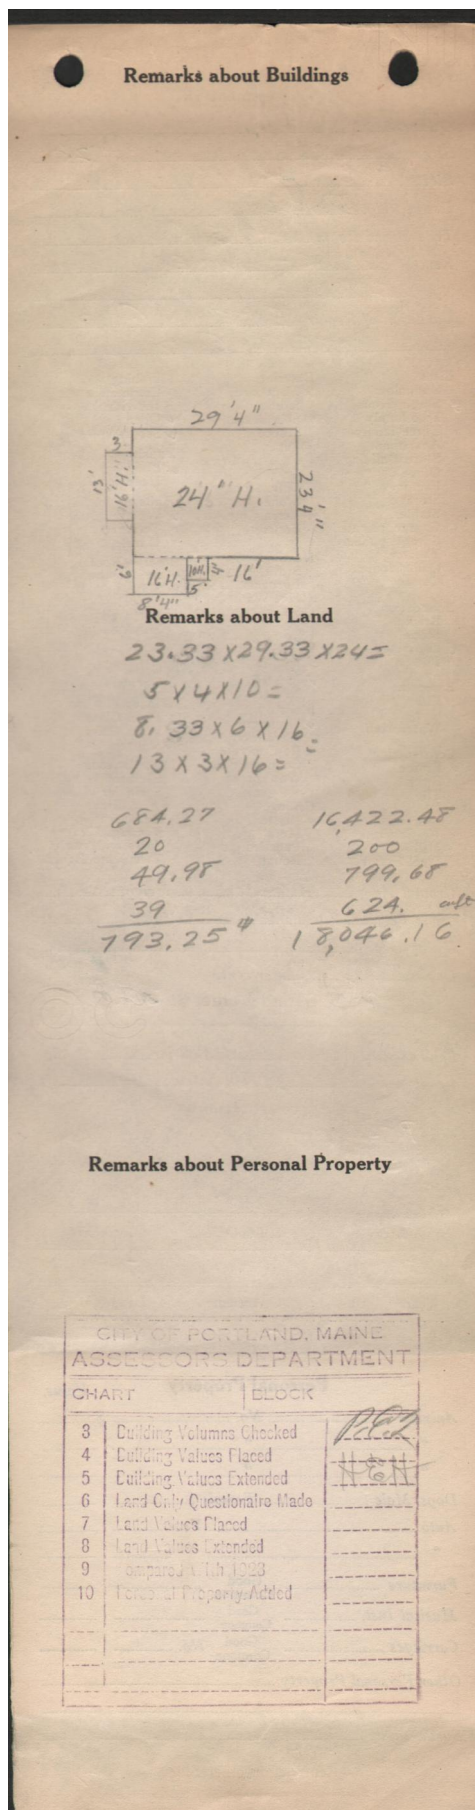 Remarks about Buildings
29'4"
3
13'
16'H.
24" H.
23'4"
6'
16'H.
10H.
4'
16'
5'
8'4"
Remarks about Land
23.33 X 29.33 X 24=
5 X 4 X 10 =
8.33 X 6 X 16 =
13 X 3 X 16 =
684.27 16,422.48
20 200
49.98 799.68
39 624. cuft
793.25 18,046.16
Remarks about Personal Property
CITY OF PORTLAND, MAINE
ASSESSORS DEPARTMENT
CHART BLOCK
3 Building Volumns Checked
4 Building Values Placed
5 Building Values Extended
6 Land Only Questionaire Made
7 Land Values Placed
8 Land Values Extended
9 Compared With 1923
10 Personal Property Added